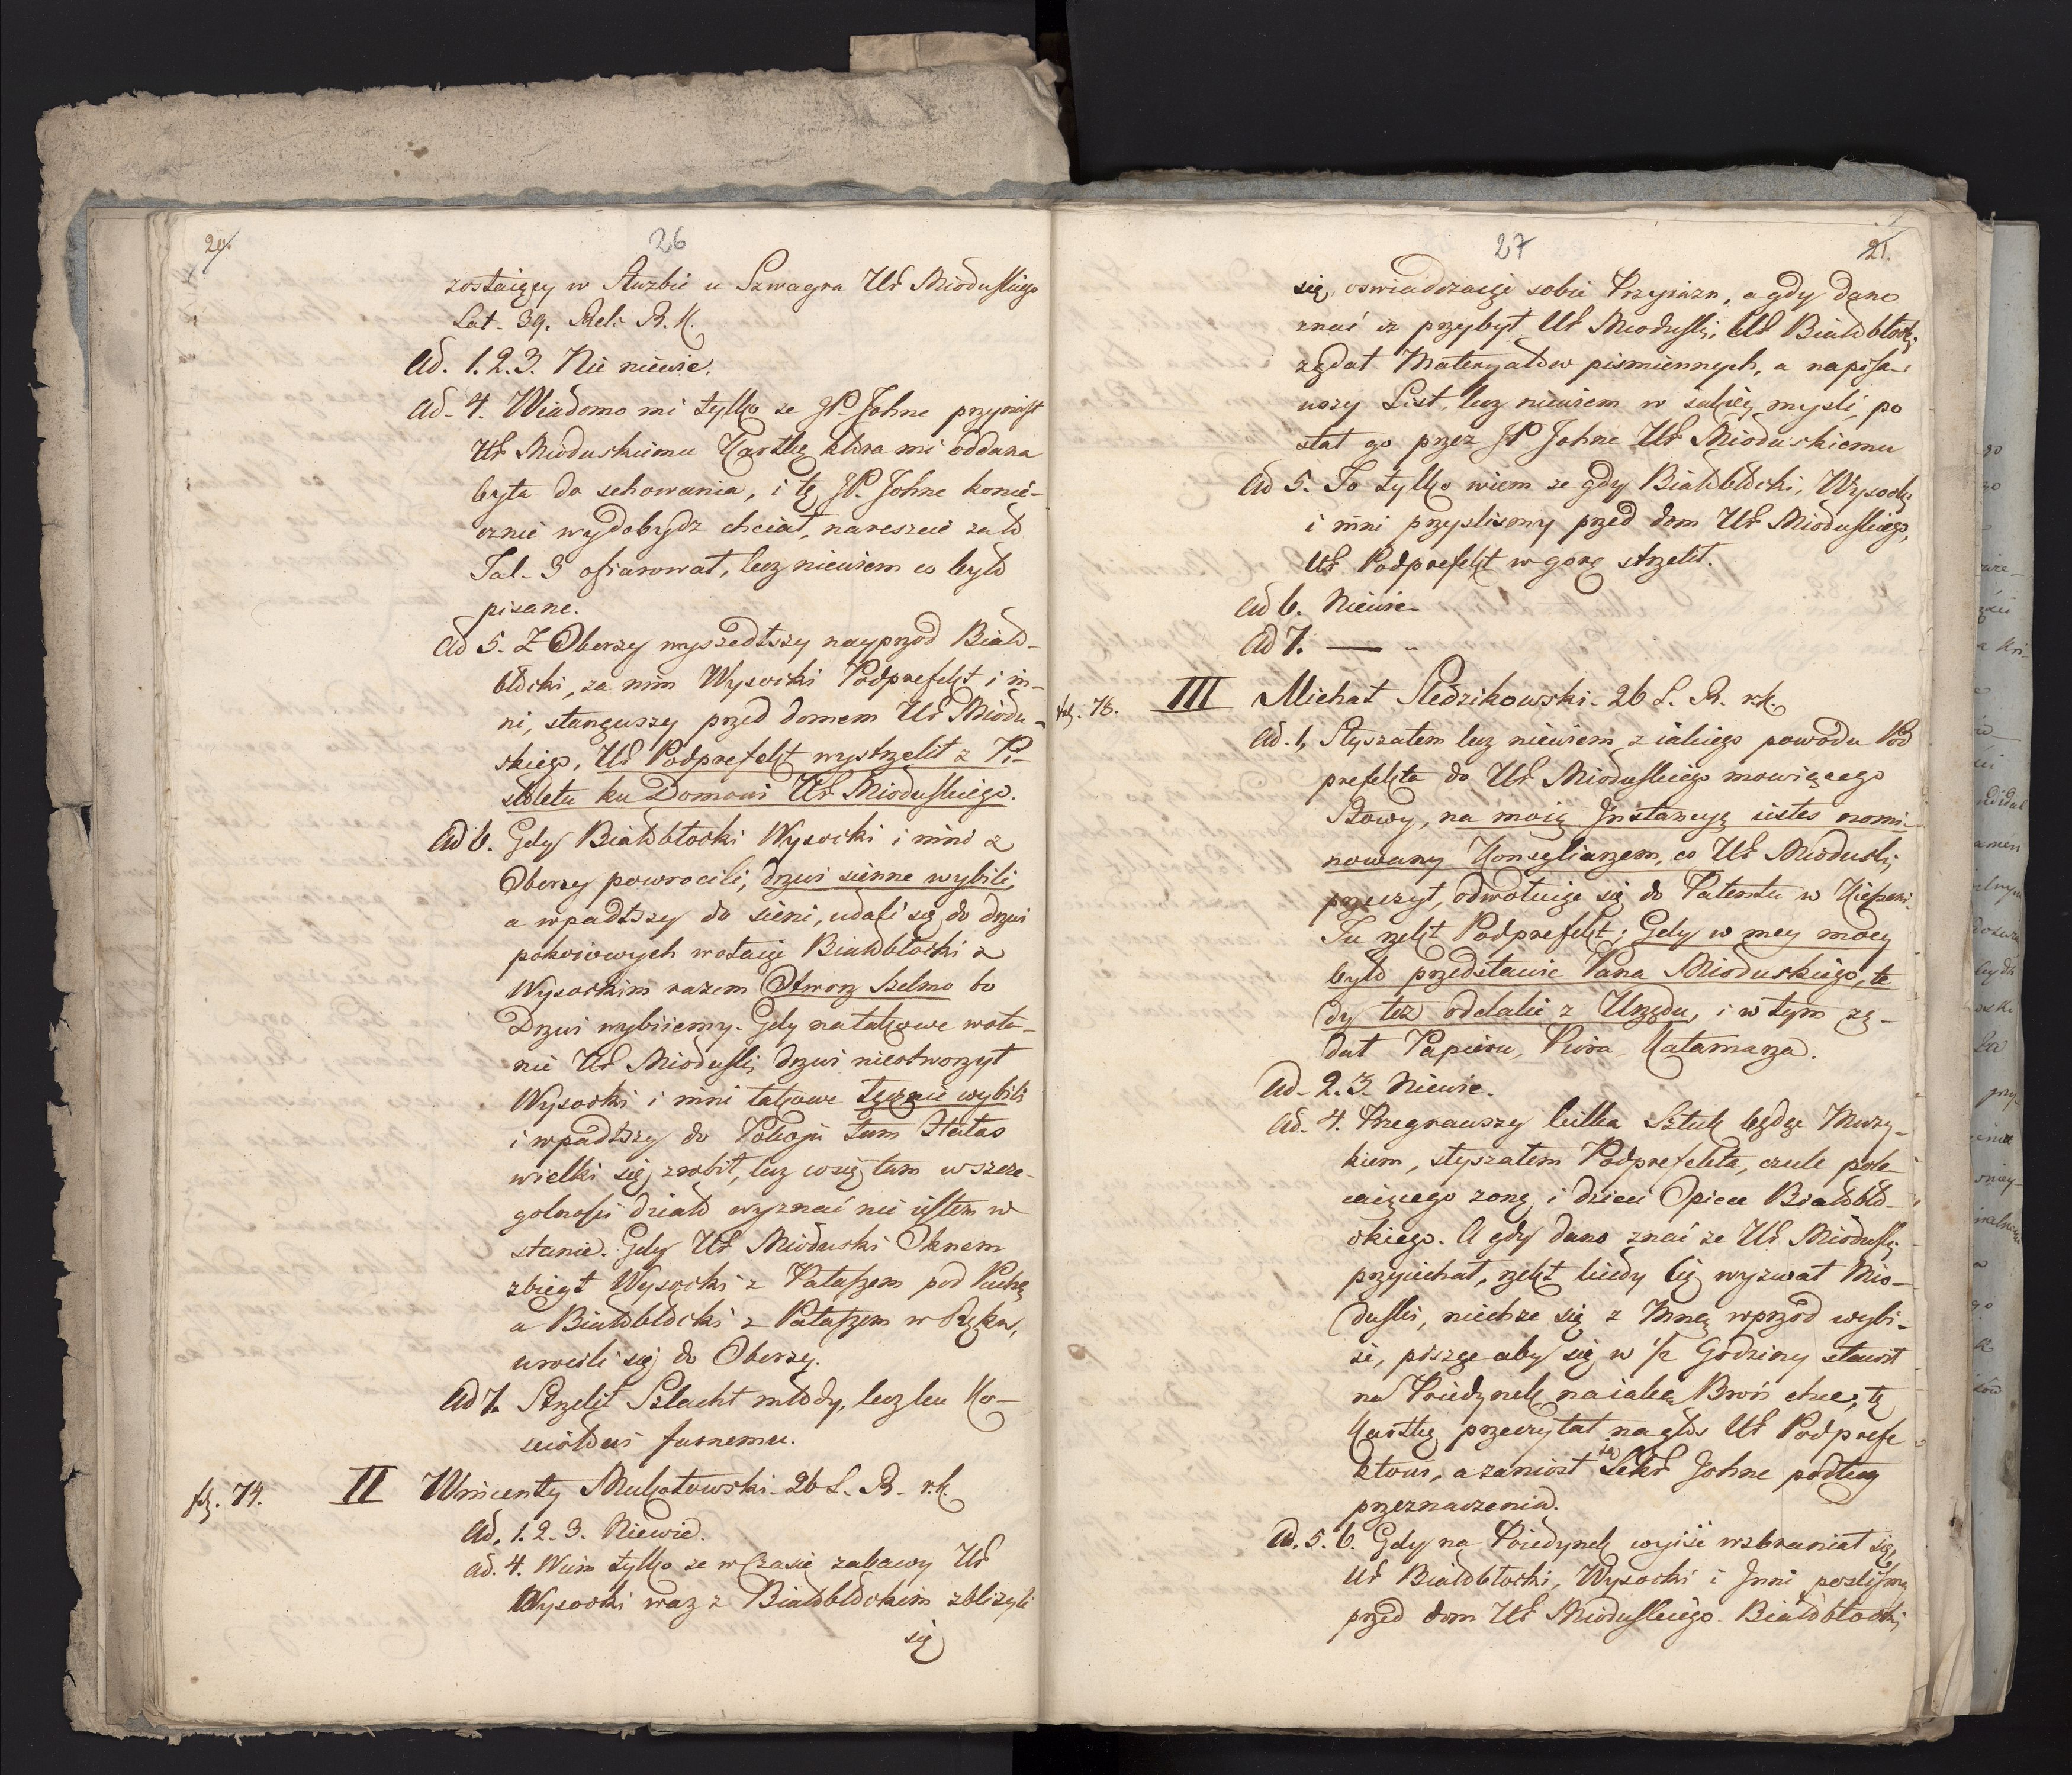 20.
26
zostaiący w Służbie u Szwagra Ur Mioduskiego
Lat. 39. Reli R. K.
Ad. 1. 2. 3. Nie niewie.
Ad. 4. Wiadomo mi tylko ze JP. Johne przyniosł
Ur Mioduskiemu Kartkę ktora mi oddana
była do schowania, i tę JP. Johne konie-
cznie wydobydz chciał, nareszcie zało
Tal. 3 ofiarował, lecz niewiem co było
pisane.
Ad 5. Z Oberzy wyszedłszy nayprzod Biało-
błocki, za nim Wysocki Podprefekt i in-
ni, stanąwszy przed domem Ur Miodu-
skiego, Ur Podprefekt wystrzelił z Pi-
stoletu ku Domowi Ur Mioduskiego.
Ad 6. Gdy Białobłocki Wysocki i inni z
Oberzy powrocili, drzwi sienne wybili,
a wpadłszy do sieni, udali się do drzwi
pokoiowych wołaiąc Białobłocki z
Wysockim razem Otworz Szelmo bo
Drzwi wybiiemy. Gdy natakowe woła-
nie Ur Mioduski drzwi nieotworzył
Wysocki i inni takowe łącznie wybili
i wpadłszy do Pokoju tam Hałas
wielki się zrobił, lecz co się tam w szcze-
golności działo wyznać nie iestem w
stanie. Gdy Ur Mioduski Oknem
zbiegł Wysocki z Pałaszem pod Pachą
a Białobłocki z Pałaszem w Ręku,
wrocili się do Oberzy.
Ad 7. Strzelił Szlacht młody, lecz ku Ko-
sciołowi farnemu.
fol. 74.
II Wincenty Mukołowski. 26 L. R. r. k.
Ad. 1. 2. 3. Niewie.
Ad. 4. Wiem tylko ze w Czasie zabawy Ur
Wysocki wraz z Białobłockim zbliżyli
się
27
21.
się, oswiadczaiąc sobie Przyiazn, a gdy dano
znać iz przybył Ur Mioduski, Ur Białobłocki
ządał Materyałow pismiennych, a napisa-
wszy List, lecz niewiem w iakiey mysli, po
słał go przez JP Johne Ur Mioduskiemu
Ad 5. To tylko wiem ze gdy Białobłocki, Wysocki
i inni przyslismy przed dom Ur Mioduskiego,
Ur Podprefekt w gorę strzelił.
Ad 6. Niewie.
Ad 7. —
fol. 76.
III Michał Sledzikowski. 26 L. R. r. k.
Ad. 1, Słyszałem lecz niewiem z iakiego powodu Pod
prefekta do Ur Mioduskiego mowiącego
Słowy, na moią Instancyą iestes nomi-
nowany Konsyliarzem, co Ur Mioduski
przeczył, odwołuiąc się do Patentu w Kieszeni.
Tu rzekł Podprefekt; Gdy w mey mocy
było przedstawic Pana Mioduskiego, te
dy tez oddalić z Urzędu, i w tym zą-
dał Papieru, Piora Kałamarza.
Ad. 2. 3. Niewie.
Ad. 4. Przegrawszy kilka Sztuk będąc Muzy-
kiem, słyszałem Podprefekta, czule pole-
caiącego zonę i dzieci Opiece Białobło-
ckiego. A gdy dano znać ze Ur Mioduski
przyiechał, rzekł kiedy Cię wyzwał Mio-
duski, niechze się z Mną wprzod wybi-
ie, pisząc aby się w 1/2 Godziny stawił
na Poiedynek na iaką Broń chce, tę
Kartkę przeczytał na głos Ur Podprefe
ktowi, a zaniosł ią Sekr Johne podług
przeznaczenia.
Ad. 5. 6. Gdy na Poiedynek wyiść wzbraniał się
Ur Białobłocki, Wysocki i Inni poslismy
przed dom Ur Mioduskiego. Białobłocki